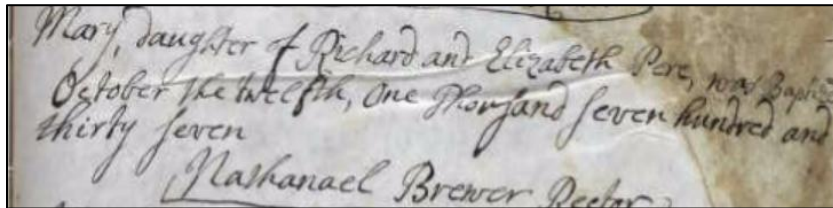 Mary, daughter of Richard and Elizabeth Pere, was Baptiz
October the twelfth, One Thousand seven hundred and
thirty seven
Nathanael Brewer Rector